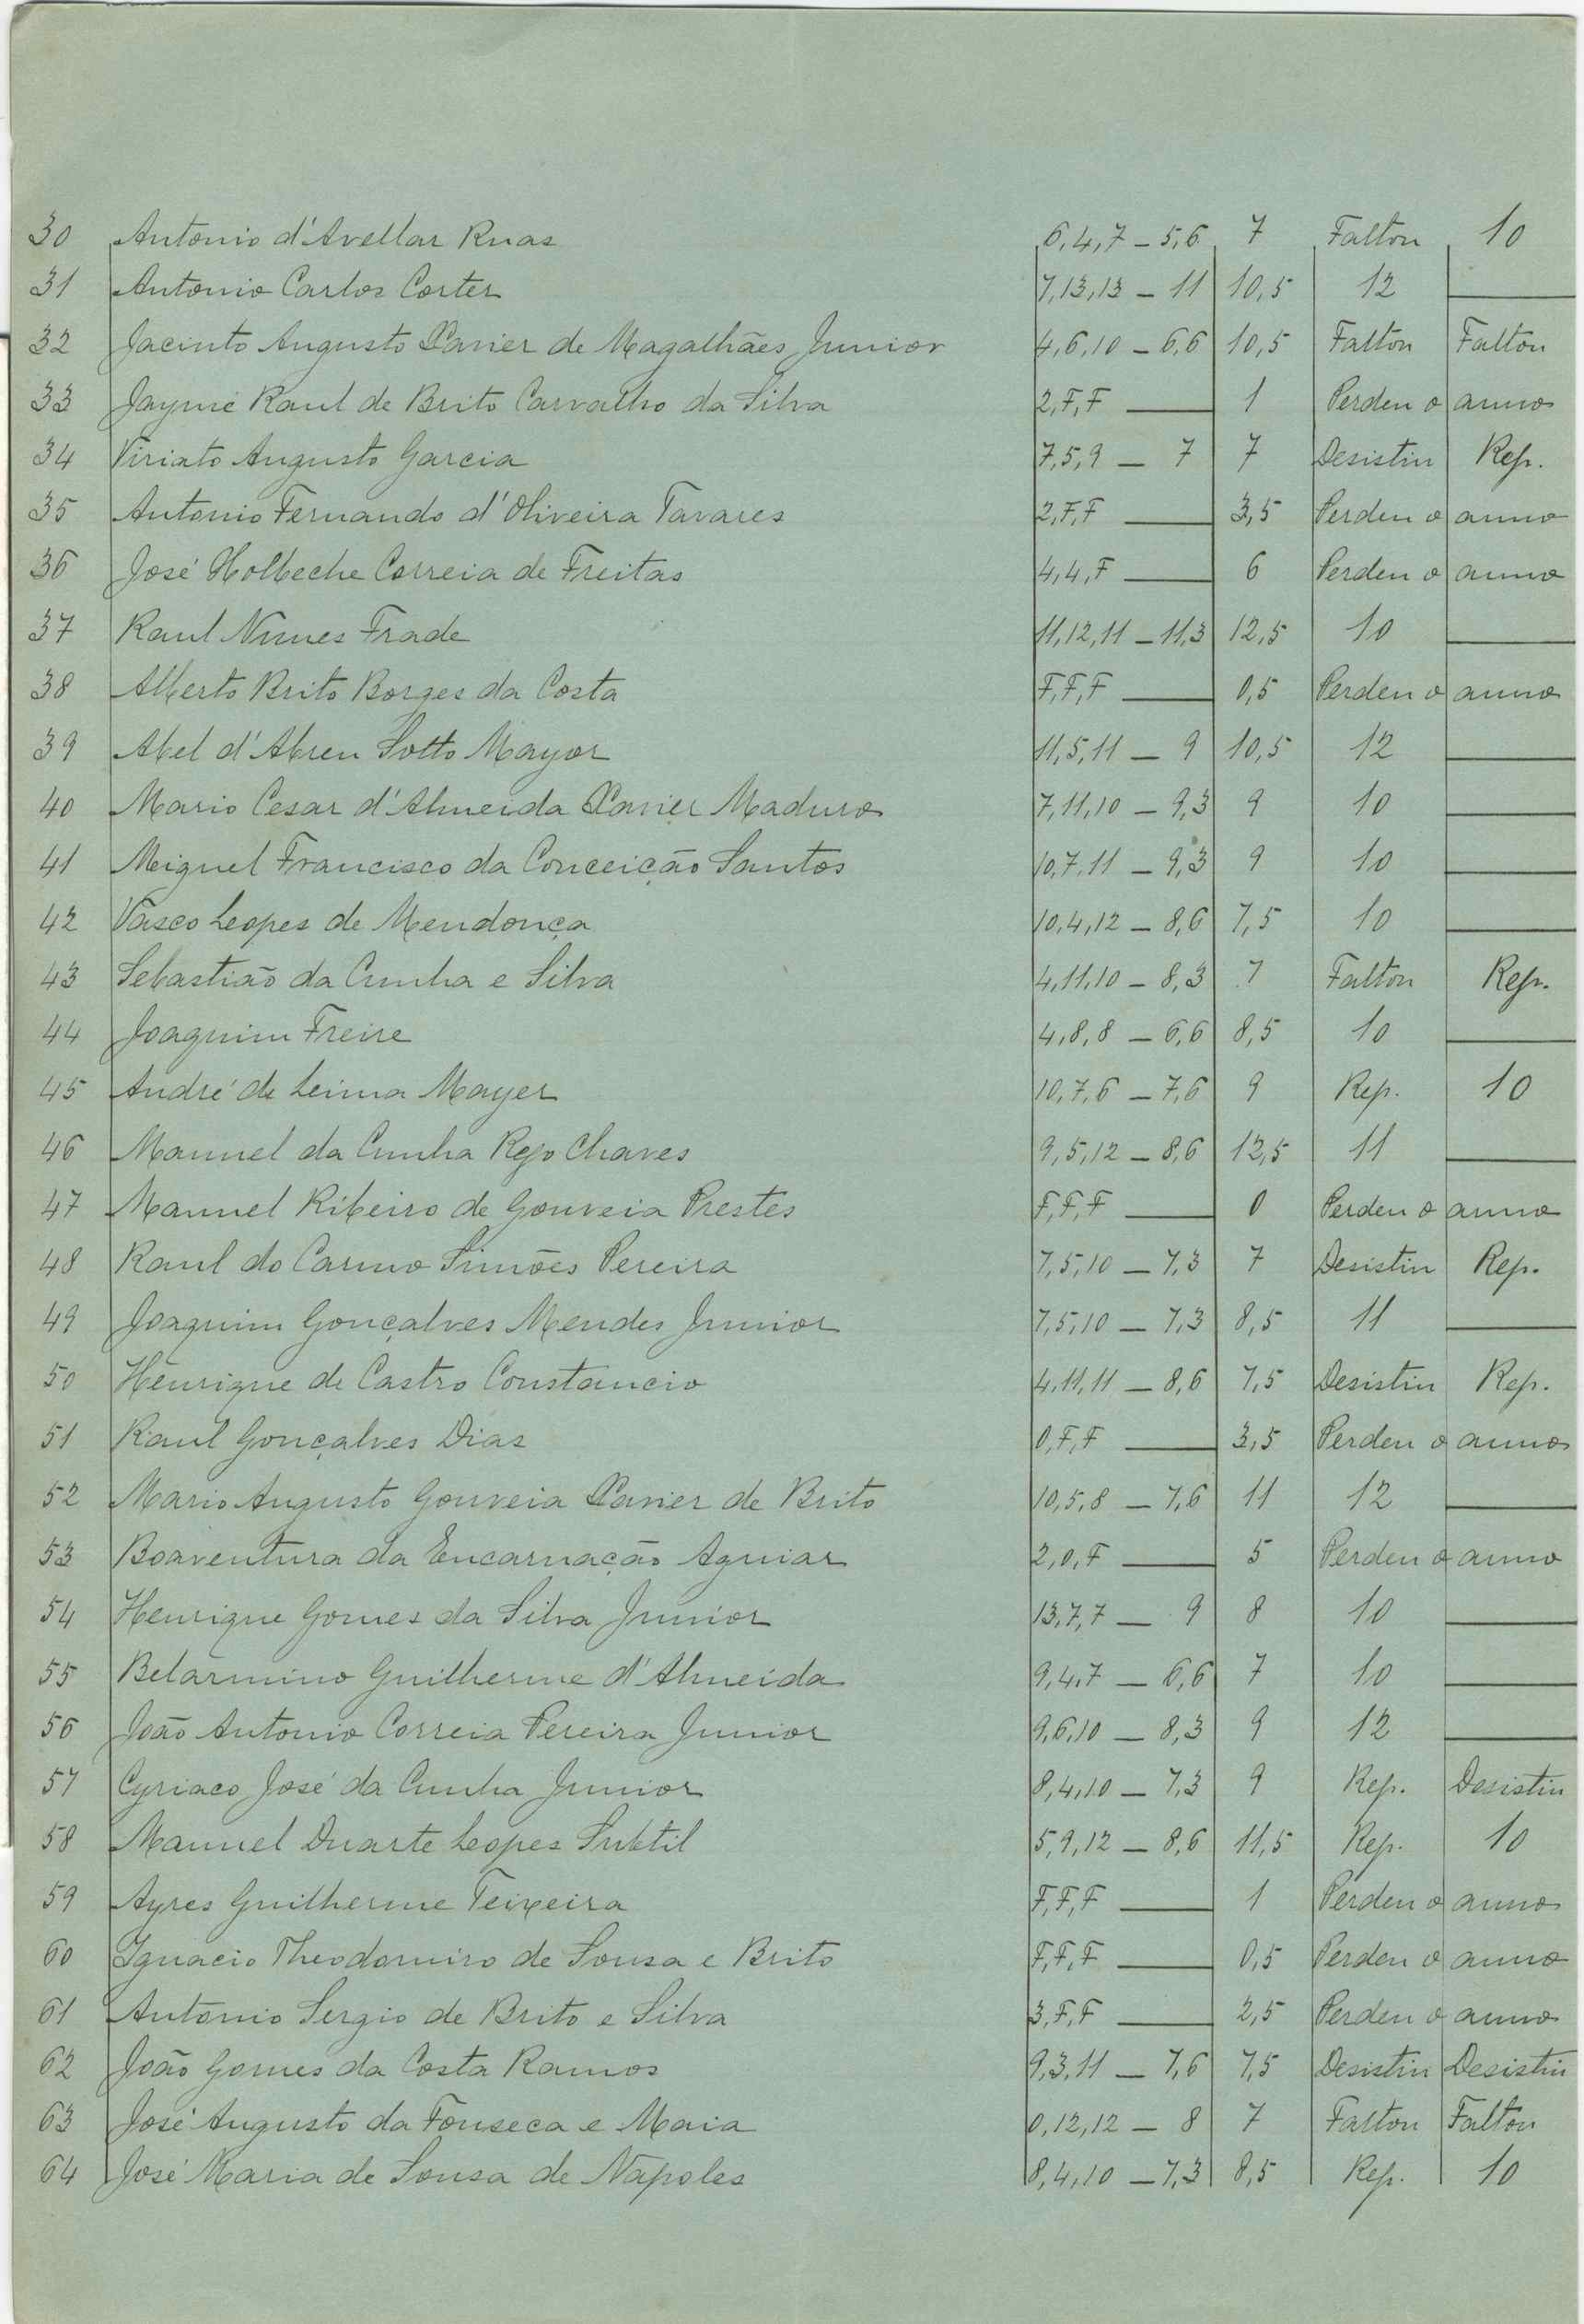 30 Antonio d'Avellar Ruas 6,4,7 — 5,6 7 Faltou 10
31 Antonio Carlos Cortez 7,13,13 — 11 10,5 12 —
32 Jacinto Augusto Xavier de Magalhães Junior 4,6,10 — 6,6 10,5 Faltou Faltou
33 Jayme Raul de Brito Carvalho da Silva 2,F,F — 1 Perdeu o anno
34 Viriato Augusto Garcia 7,5,9 — 7 7 Desistiu Rep.
35 Antonio Fernando d'Oliveira Tavares 2,F,F — 3,5 Perdeu o anno
36 José Holbeche Correia de Freitas 4,4,F — 6 Perdeu o anno
37 Raul Nunes Frade 11,12,11 — 11,3 12,5 10 —
38 Alberto Brito Borges da Costa F,F,F — 0,5 Perdeu o anno
39 Abel d'Abreu Sotto Mayor 11,5,11 — 9 10,5 12 —
40 Mario Cesar d'Almeida Xavier Maduro 7,11,10 — 9,3 9 10 —
41 Miguel Francisco da Conceição Santos 10,7,11 — 9,3 9 10 —
42 Vasco Lopes de Mendonça 10,4,12 — 8,6 7,5 10 —
43 Sebastião da Cunha e Silva 4,11,10 — 8,3 7 Faltou Rep.
44 Joaquim Freire 4,8,8 — 6,6 8,5 10 —
45 André de Lima Mayer 10,7,6 — 7,6 9 Rep. 10
46 Manuel da Cunha Rego Chaves 9,5,12 — 8,6 12,5 11 —
47 Manuel Ribeiro de Gouveia Prestes F,F,F — 0 Perdeu o anno
48 Raul do Carmo Simões Pereira 7,5,10 — 7,3 7 Desistiu Rep.
49 Joaquim Gonçalves Mendes Junior 7,5,10 — 7,3 8,5 11 —
50 Henrique de Castro Constancio 4,11,11 — 8,6 7,5 Desistiu Rep.
51 Raul Gonçalves Dias 0,F,F — 3,5 Perdeu o anno
52 Mario Augusto Gouveia Xavier de Brito 10,5,8 — 7,6 11 12 —
53 Boaventura da Encarnação Aguiar 2,0,F — 5 Perdeu o anno
54 Henrique Gomes da Silva Junior 13,7,7 — 9 8 10 —
55 Belarmino Guilherme d'Almeida 9,4,7 — 6,6 7 10 —
56 João Antonio Correia Pereira Junior 9,6,10 — 8,3 9 12 —
57 Cyriaco José da Cunha Junior 8,4,10 — 7,3 9 Rep. Desistiu
58 Manuel Duarte Lopes Subtil 5,9,12 — 8,6 11,5 Rep. 10
59 Ayres Guilherme Teixeira F,F,F — 1 Perdeu o anno
60 Ignacio Theodomiro de Sousa e Brito F,F,F — 0,5 Perdeu o anno
61 Antonio Sergio de Brito e Silva 3,F,F — 2,5 Perdeu o anno
62 João Gomes da Costa Ramos 9,3,11 — 7,6 7,5 Desistiu Desistiu
63 José Augusto da Fonseca e Maia 0,12,12 — 8 7 Faltou Faltou
64 José Maria de Sousa de Napoles 8,4,10 — 7,3 8,5 Rep. 10